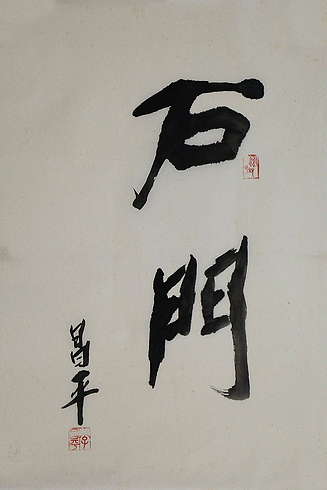 石門
昌平